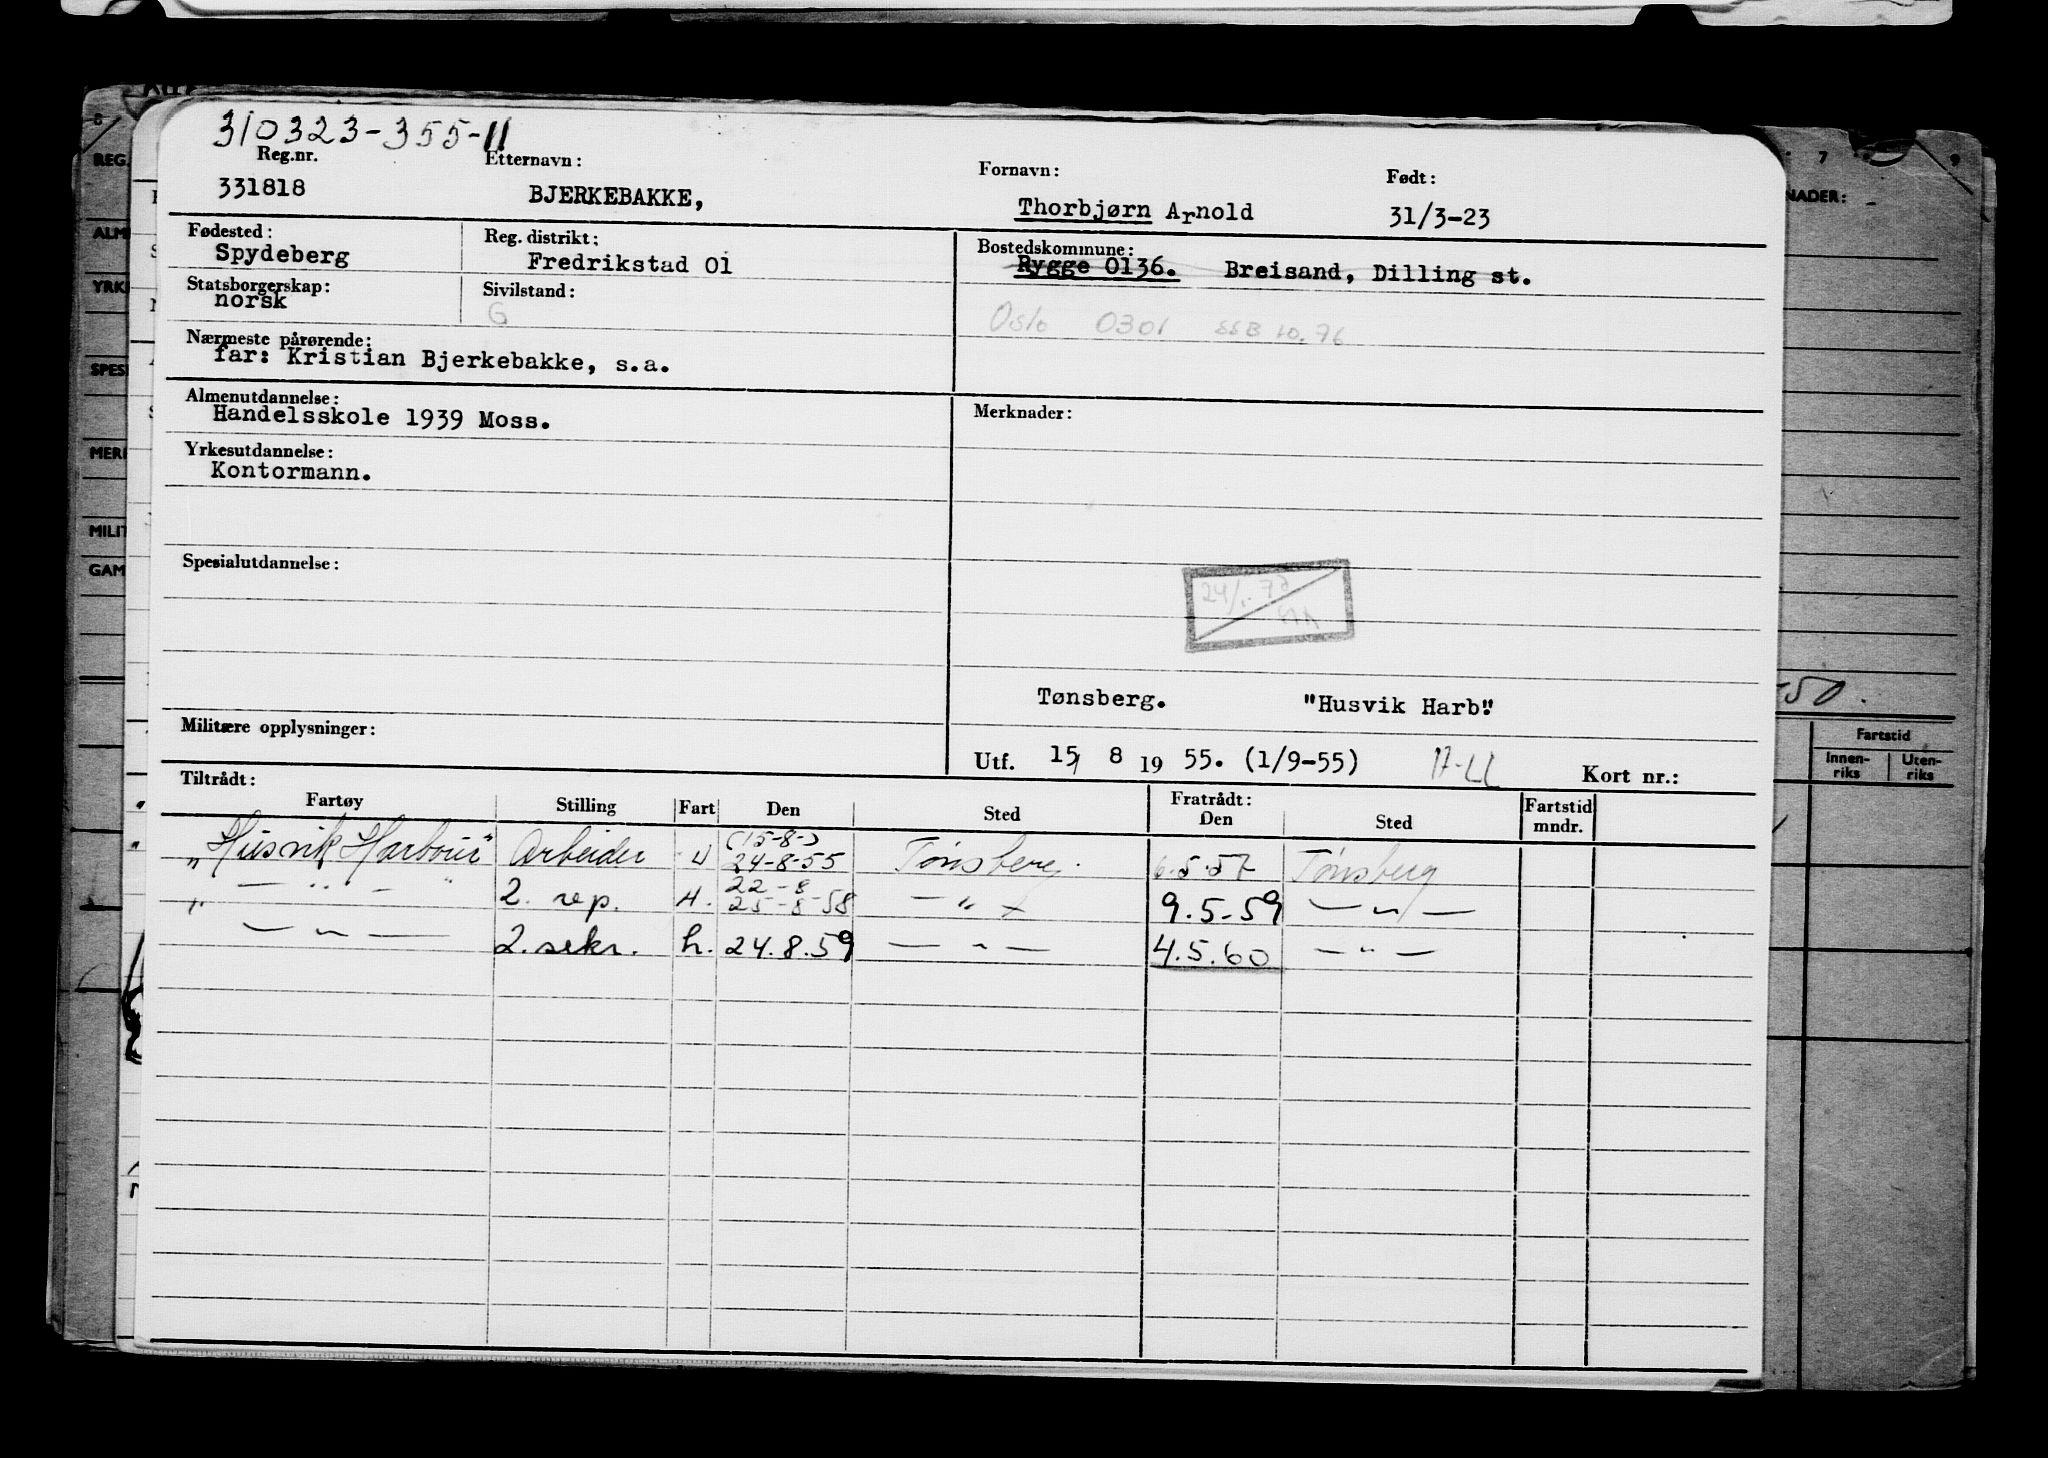 310323-355-11
Reg.nr. Etternavn: Fornavn: Født:
331818 BJERKEBAKKE, Thorbjørn Arnold 31/3-23
Fødested: Reg. distrikt: Bostedskommune:
Spydeberg Fredrikstad 01 Rygge 0136. Breisand, Dilling st.
Statsborgerskap: Sivilstand:
norsk G Oslo 0301 SSB 10.76
Nærmeste pårørende:
far: Kristian Bjerkebakke, s.a.
Almenutdannelse: Merknader:
Handelsskole 1939 Moss.
Yrkesutdannelse:
Kontormann.
Spesialutdannelse:
Tønsberg. "Husvik Harb."
Militære opplysninger:
Utf. 15/ 8 19 55. (1/9-55) Kort nr.:
Tiltrådt: Fratrådt:
Fartøy Stilling Fart Den Sted Den Sted Fartstid mndr.
(15-8-)
„Husvik Harbour" Arbeider 24-8-55 Tønsberg. 6.5.57 Tønsberg
22-8
„ — " — " 2. rep. H. 25-8-58 — " — 9.5-59 — " —
— " — 2. sekr. h. 24.8.59 — " — 4.5.60 — " —
REG.
ALM
YRK
SPES
MERK
MILIT
GAM
7 9
NADER:
-50.
Fartstid
Innen-riks Uten-riks